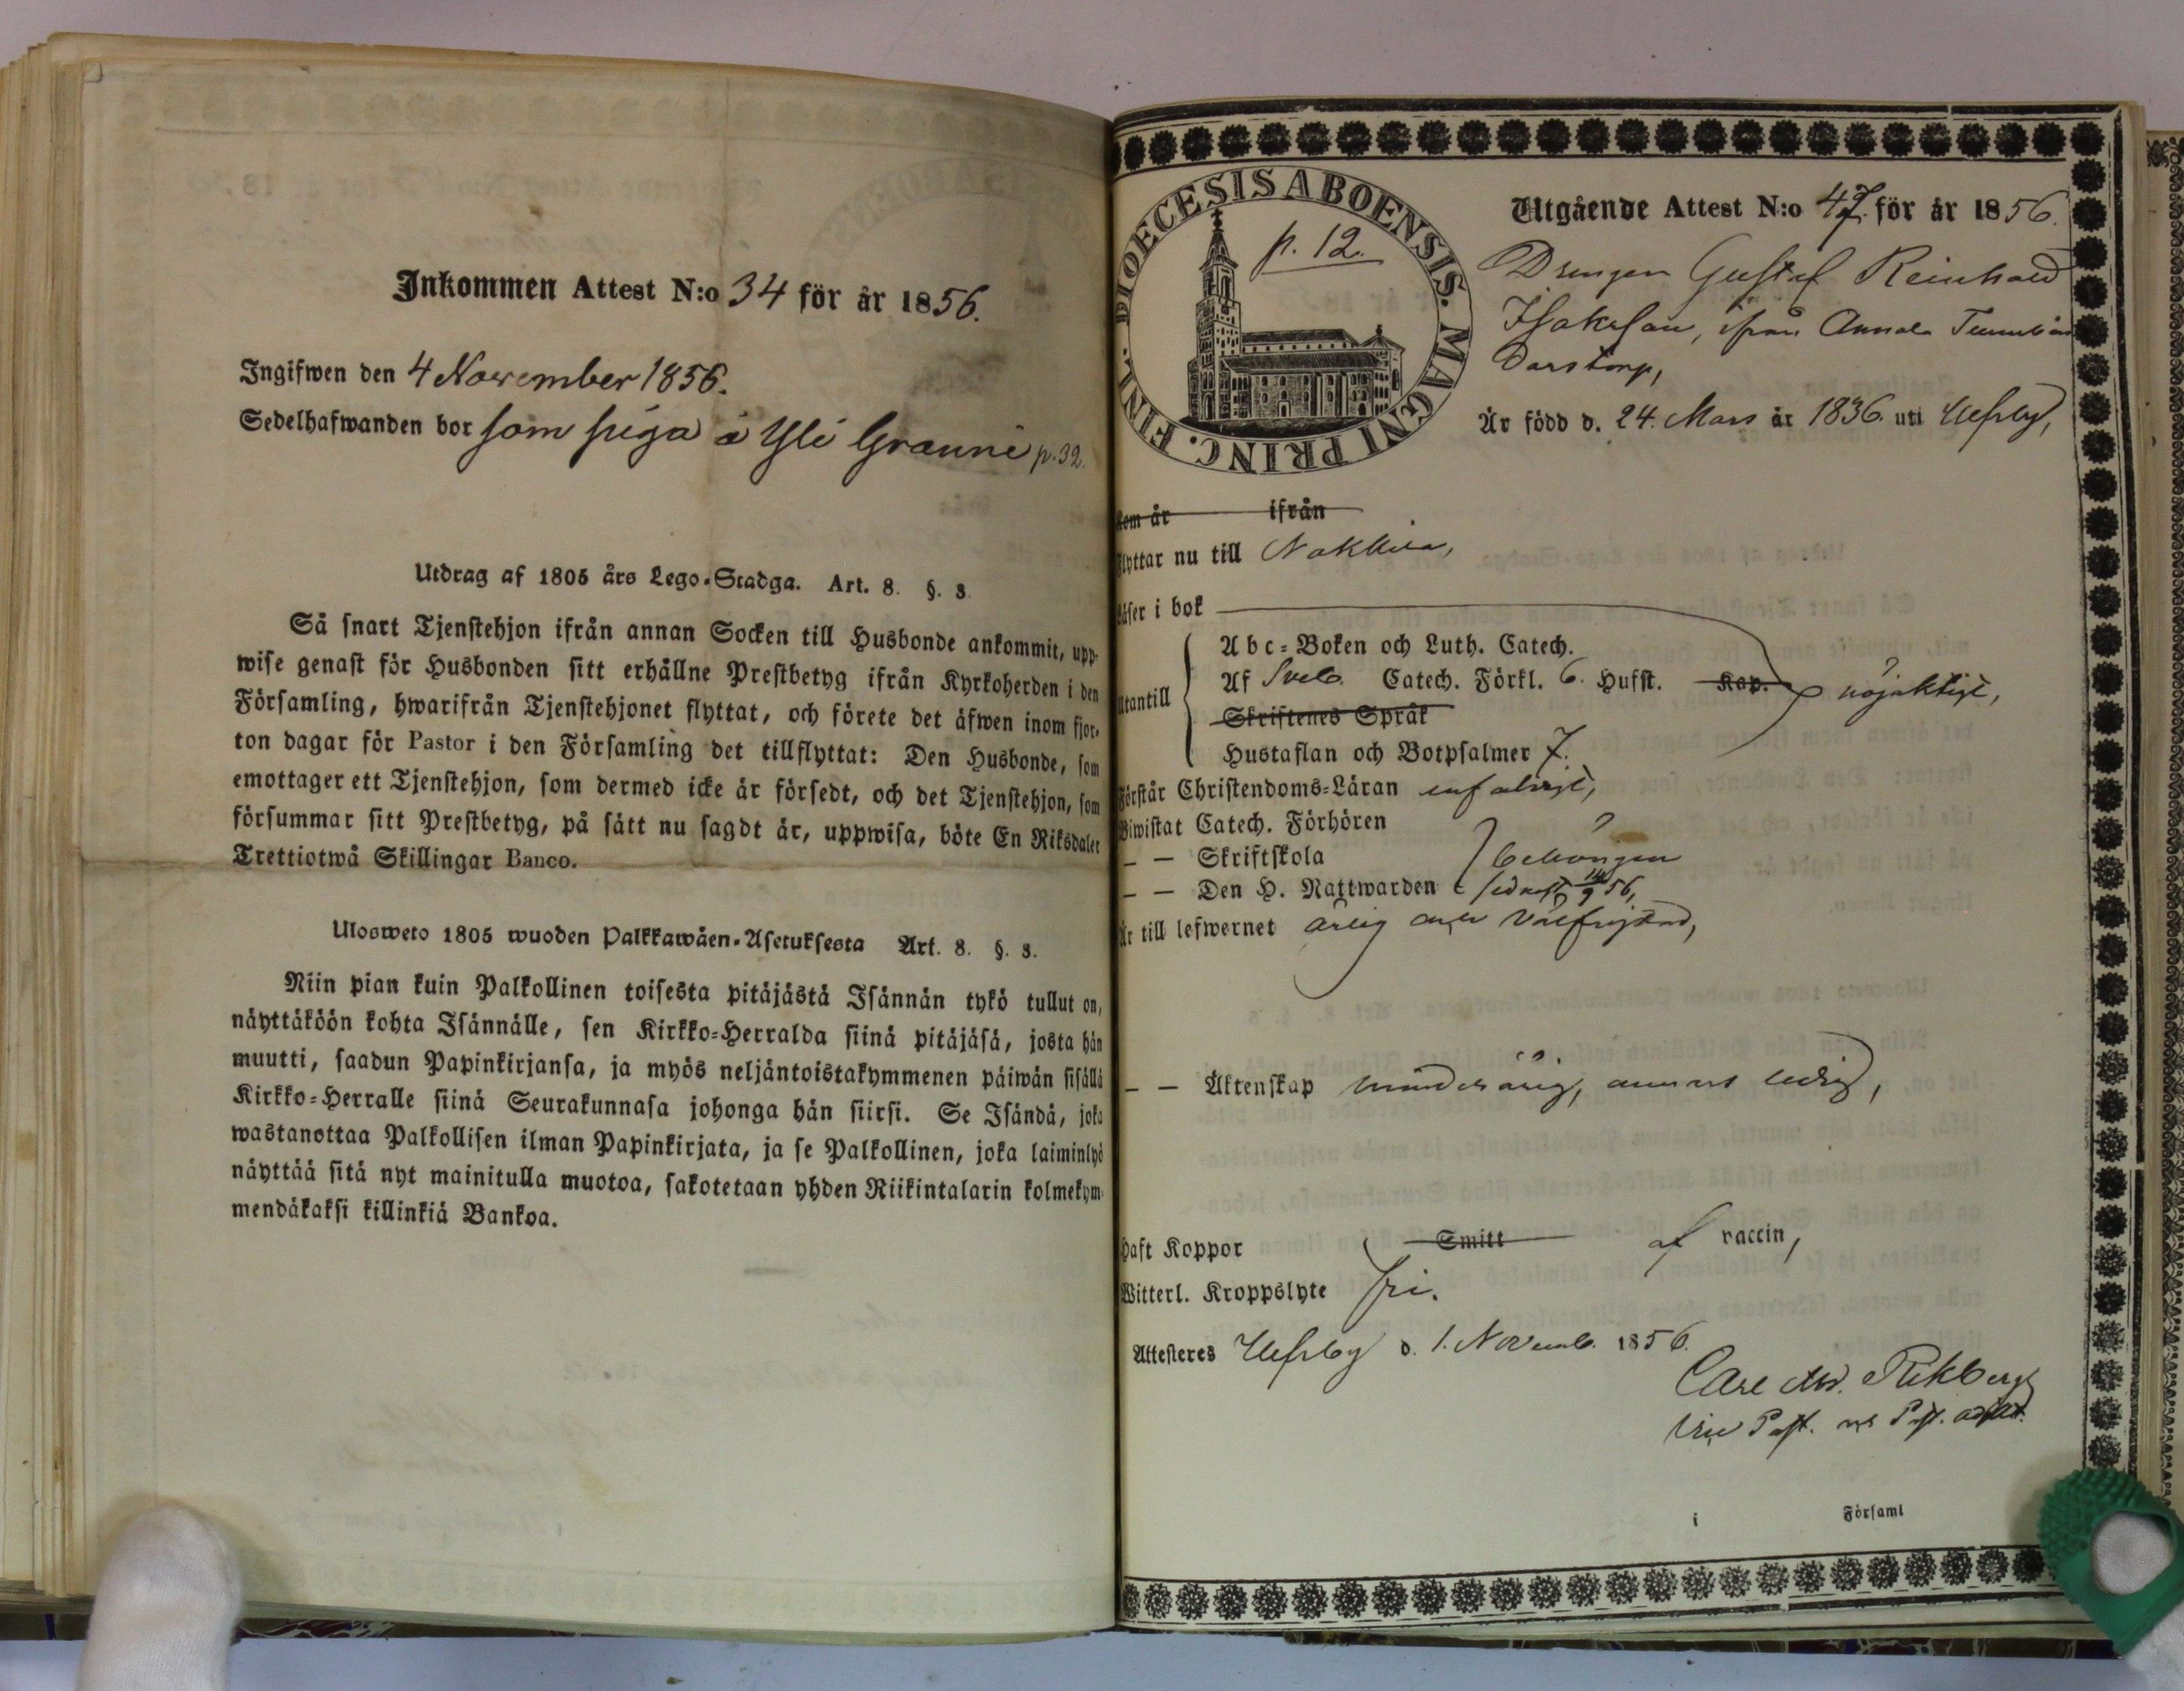 Inkommen Attest N:o 34 för år 1856.
Ingifwen den 4 November 1856.
Sedelhafwanden bor som piga å Yli Granni p. 32.
Utdrag af 1805 års Lego-Stadga. Art. 8. §. 3.
Så snart Tjenstehjon ifrån annan Socken till Husbonde ankommit, upp-
wise genast för Husbonden sitt erhållne Prestbetyg ifrån Kyrkoherden i den
Församling, hwarifrån Tjenstehjonet flyttat, och förete det äfwen inom fjor-
ton dagar för Pastor i den Församling det tillflyttat: Den Husbonde, som
emottager ett Tjenstehjon, som dermed icke är försedt, och det Tjenstehjon, som
försummar sitt Prestbetyg, på sätt nu sagdt är, uppwisa, böte En Riksdaler
Trettiotwå Skillingar Banco.
Ulosweto 1805 wuoden Palkkawäen-Asetuksesta Art. 8. §. 3.
Niin pian kuin Palkollinen toisesta pitäjästä Isännän tykö tullut on,
näyttäköön kohta Isännälle, sen Kirkko-Herralda siinä pitäjäsä, josta hän
muutti, saadun Papinkirjansa, ja myös neljäntoistakymmenen päiwän sisällä
Kirkko-Herralle siinä Seurakunnasa johonga hän siirsi. Se Isändä, joka
wastanottaa Palkollisen ilman Papinkirjata, ja se Palkollinen, joka laiminlyö
näyttää sitä nyt mainitulla muotoa, sakotetaan yhden Riikintalarin kolmekym-
mendäkaksi killinkiä Bankoa.
DIOECESIS ABOENSIS. MAGNI PRINC. FINL.
p. 12.
Utgående Attest N:o 47. för år 1856.
Drengen Gustaf Reinhold
Isaksson, ifrån Annala
Darstorp,
Är född d. 24. Mars år 1836. uti Ulfsby,
kom år ifrån
Flyttar nu till Nakkila,
Läser i bok
Abc-Boken och Luth. Catech.
Utantill Af Sveb. Catech. Förkl. 6. Hufst. Kap. nöjaktigt,
Skriftenes Språk
Hustaflan och Botpsalmer 7.
Förstår Christendoms-Läran enfaldigt,
Biwistat Catech. Förhören
— — Skriftskola behörigen
— — Den H. Nattwarden sednast 56,
Är till lefwernet ärlig och välfrejdad,
— — Äktenskap minderårig, annars ledig,
Haft Koppor Smitt af vaccin,
Witterl. Kroppslyte fri.
Attesteres Ulfsby d. 1. Novemb. 1856.
Carl Rikberg
Vice Past.
i Församl